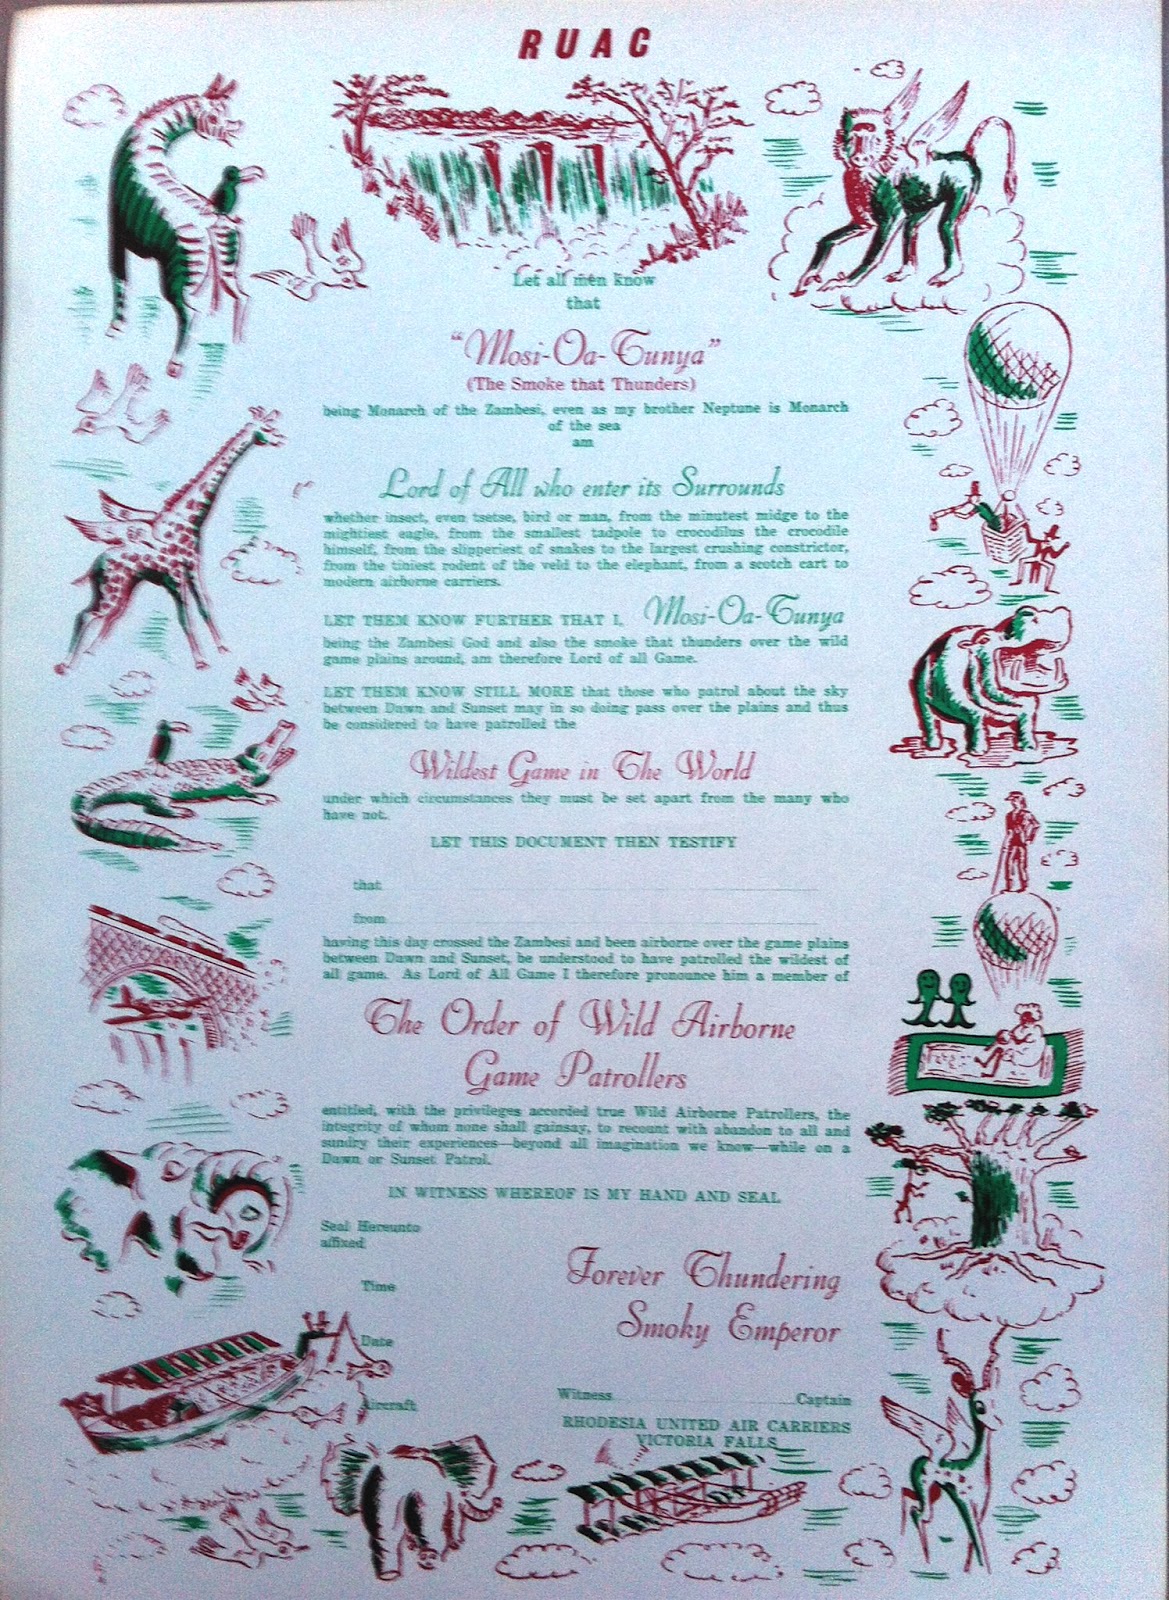 RUAC
Let all men know
that
"Mosi-Oa-Tunya"
(The Smoke that Thunders)
being Monarch of the Zambesi, even as my brother Neptune is Monarch
of the sea
am
Lord of All who enter its Surrounds
whether insect, even tsetse, bird or man, from the minutest midge to the
mightiest eagle, from the smallest tadpole to crocodilus the crocodile
himself, from the slipperiest of snakes to the largest crushing constrictor,
from the tiniest rodent of the veld to the elephant, from a scotch cart to
modern airborne carriers.
LET THEM KNOW FURTHER THAT I, Mosi-Oa-Tunya
being the Zambesi God and also the smoke that thunders over the wild
game plains around, am therefore Lord of all Game.
LET THEM KNOW STILL MORE that those who patrol about the sky
between Dawn and Sunset may in so doing pass over the plains and thus
be considered to have patrolled the
Wildest Game in The World
under which circumstances they must be set apart from the many who
have not.
LET THIS DOCUMENT THEN TESTIFY
that
from
having this day crossed the Zambesi and been airborne over the game plains
between Dawn and Sunset, be understood to have patrolled the wildest of
all game. As Lord of All Game I therefore pronounce him a member of
The Order of Wild Airborne
Game Patrollers
entitled, with the privileges accorded true Wild Airborne Patrollers, the
integrity of whom none shall gainsay, to recount with abandon to all and
sundry their experiences—beyond all imagination we know—while on a
Dawn or Sunset Patrol.
IN WITNESS WHEREOF IS MY HAND AND SEAL
Seal Hereunto
affixed
Forever Thundering
Time
Smoky Emperor
Date
Aircraft
Witness Captain
RHODESIA UNITED AIR CARRIERS
VICTORIA FALLS